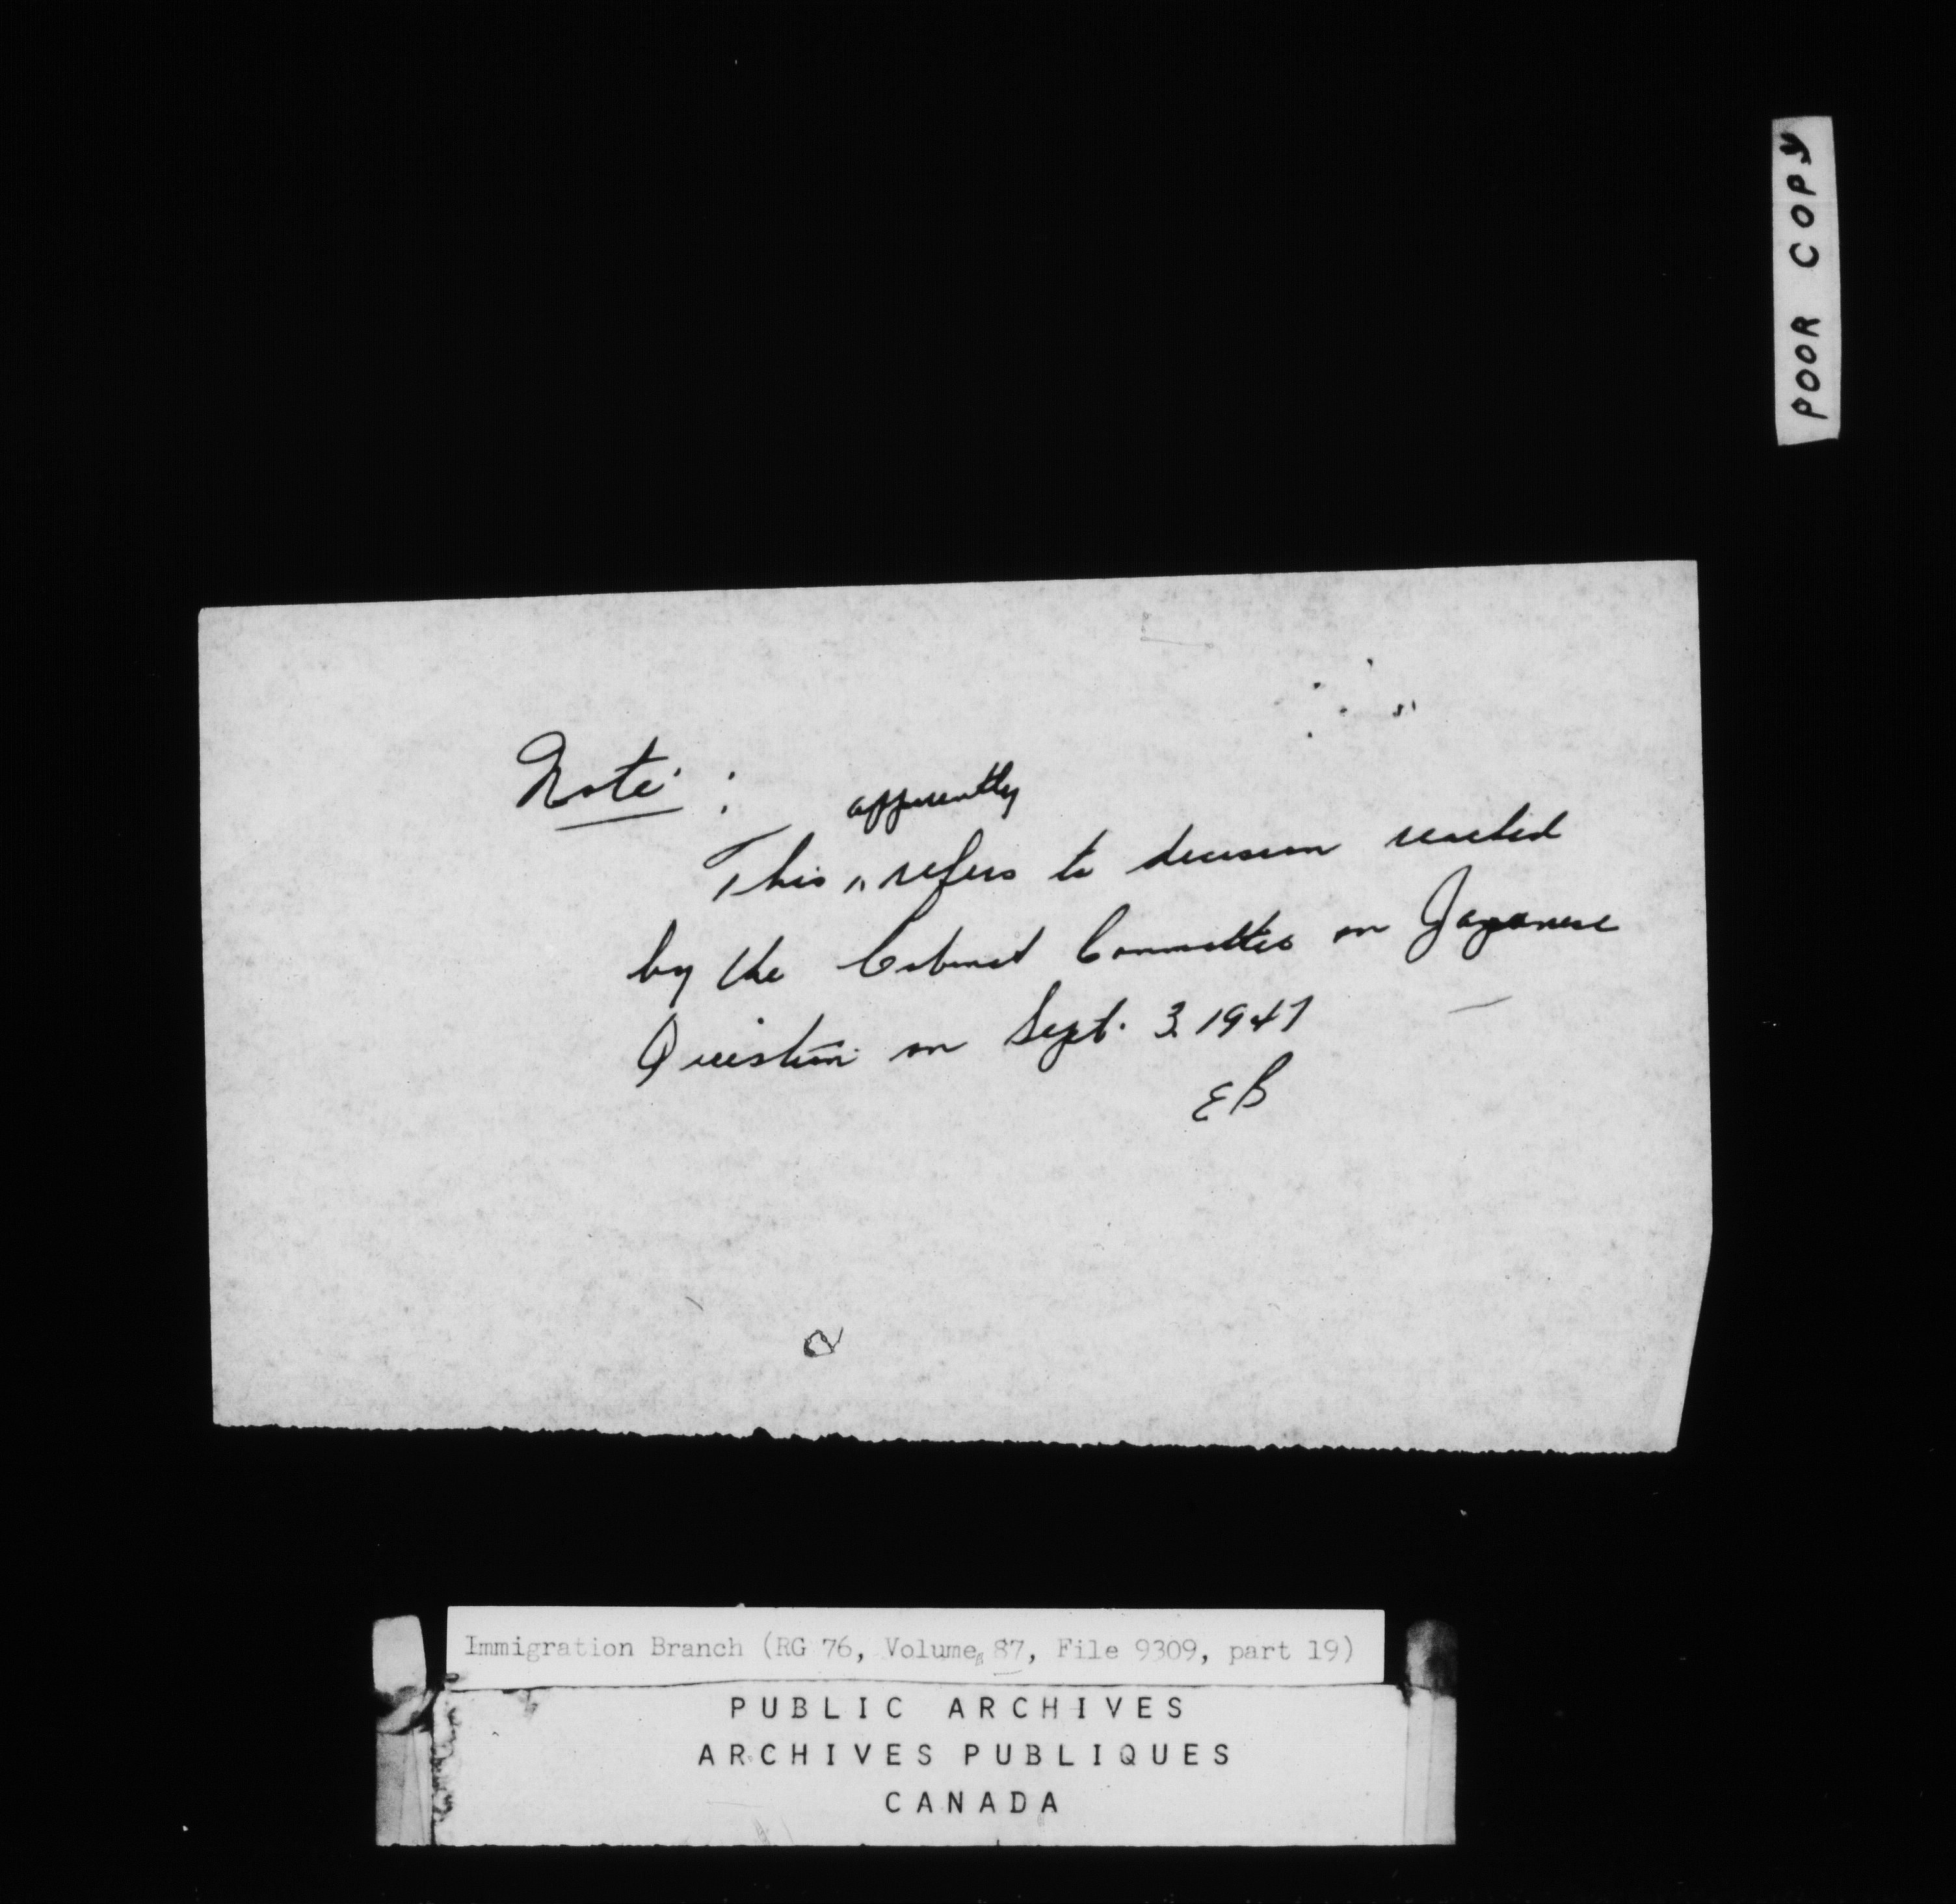 POOR COPY
Note:
apparently
This ^ refers to decision reached
by the Cabinet Committee on Japanese
Question on Sept. 3. 1947
EB
Immigration Branch (RG 76, Volume 87, File 9309, part 19)
PUBLIC ARCHIVES
ARCHIVES PUBLIQUES
CANADA